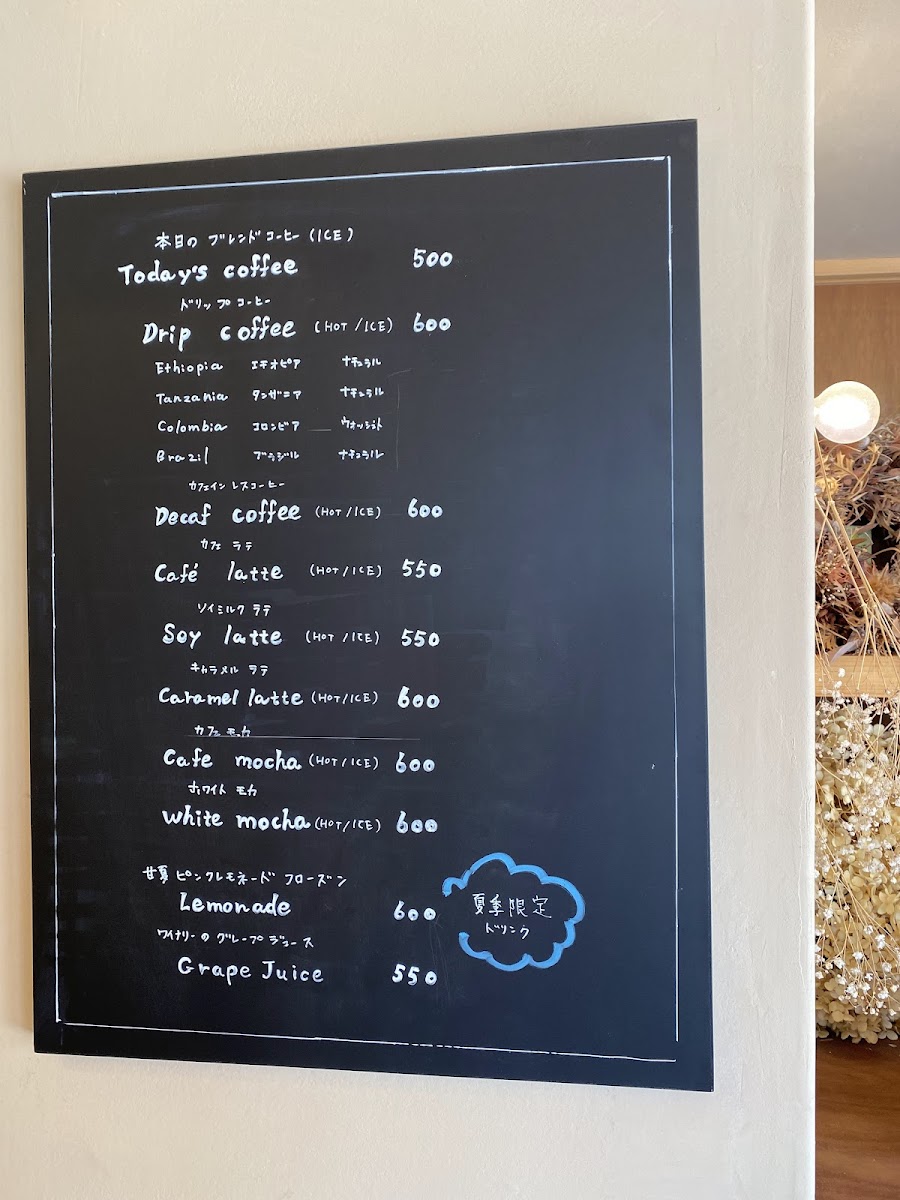 本日の ブレンドコーヒー (ICE)
Today's coffee 500
ドリップコーヒー
Drip coffee (HOT/ICE) 600
Ethiopia エチオピア ナチュラル
Tanzania タンザニア ナチュラル
Colombia コロンビア ウォッシュト
Brazil ブラジル ナチュラル
カフェインレスコーヒー
Decaf coffee (HOT/ICE) 600
カフェ ラテ
Café latte (HOT/ICE) 550
ソイミルク ラテ
Soy latte (HOT/ICE) 550
キャラメル ラテ
Caramel latte (HOT/ICE) 600
カフェ モカ
Cafe mocha (HOT/ICE) 600
ホワイト モカ
White mocha (HOT/ICE) 600
甘夏 ピンクレモネード フローズン
Lemonade 600
夏季限定
ドリンク
ワイナリーの グレープジュース
Grape Juice 550